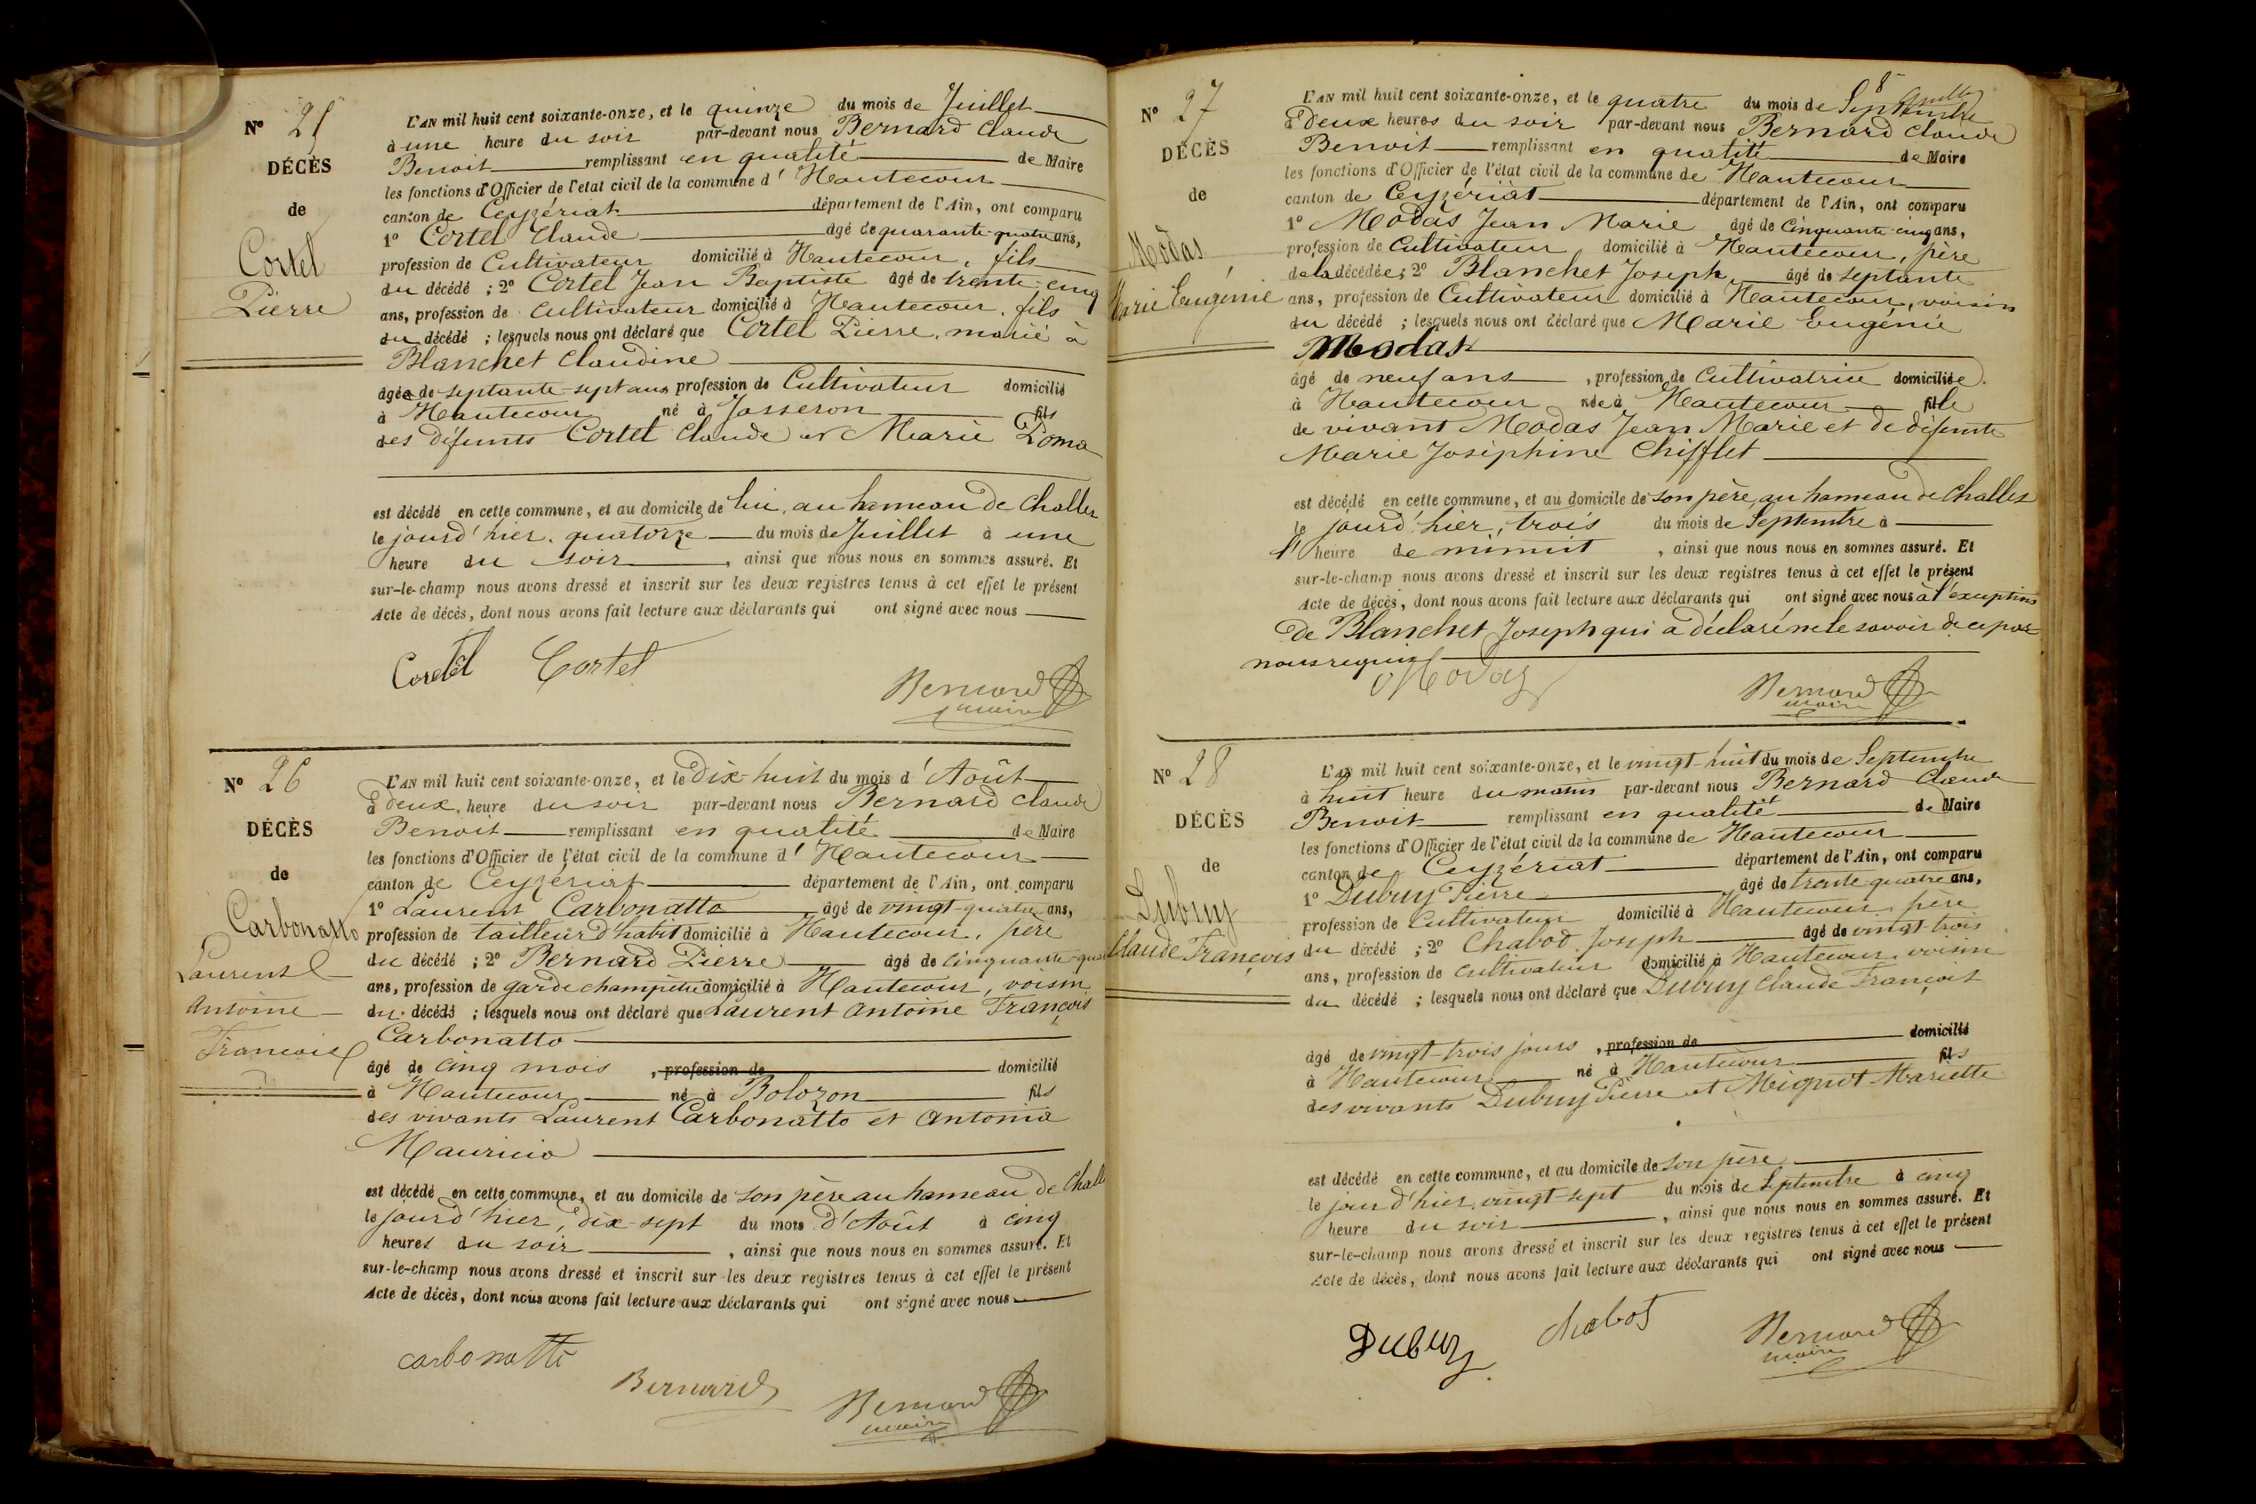 N° 25
DÉCÈS
de
Cortel
Pierre
L'AN mil huit cent soixante-onze, et le quinze du mois de Juillet
à une heure du soir par-devant nous Bernard Claude
Benoit remplissant en qualité de Maire
les fonctions d'Officier de l'état civil de la commune d' Hautecour
canton de Ceyzériat département de l'Ain, ont comparu
1° Cortel Claude âgé de quarante-quatre ans,
profession de Cultivateur domicilié à Hautecour, fils
du décédé ; 2° Cortel Jean Baptiste âgé de trente-cinq
ans, profession de Cultivateur domicilié à Hautecour, fils
du décédé ; lesquels nous ont déclaré que Cortel Pierre, marié à
Blanchet Claudine
âgé de septante-sept ans profession de Cultivateur domicilié
à Hautecour né à Jasseron fils
des défunts Cortel Claude et Marie Poma
est décédé en cette commune, et au domicile de lui, au hameau de Challes
le jourd'hier, quatorze du mois de Juillet à une
heure du soir, ainsi que nous nous en sommes assuré. Et
sur-le-champ nous avons dressé et inscrit sur les deux registres tenus à cet effet le présent
Acte de décès, dont nous avons fait lecture aux déclarants qui ont signé avec nous
Cortel Cortel
Bernard
maire
N° 26
DÉCÈS
de
Carbonatto
Laurent
Antoine
François
L'AN mil huit cent soixante-onze, et le Dix-huit du mois d' Août
à deux heure du soir par-devant nous Bernard Claude
Benoit remplissant en qualité de Maire
les fonctions d'Officier de l'état civil de la commune d' Hautecour
canton de Ceyzériat département de l'Ain, ont comparu
1° Laurent Carbonatto âgé de vingt-quatre ans,
profession de tailleur d'habit domicilié à Hautecour, père
du décédé ; 2° Bernard Pierre âgé de cinquante-qua
ans, profession de garde champêtre domicilié à Hautecour, voisin
du décédé ; lesquels nous ont déclaré que Laurent Antoine François
Carbonatto
âgé de cinq mois, profession de domicilié
à Hautecour né à Bolozon fils
des vivants Laurent Carbonatto et Antonia
Mauricio
est décédé en cette commune, et au domicile de son père au hameau de Chall
le jourd'hier, dix-sept du mois d'Août à cinq
heures du soir, ainsi que nous nous en sommes assuré. Et
sur-le-champ nous avons dressé et inscrit sur les deux registres tenus à cet effet le présent
Acte de décès, dont nous avons fait lecture aux déclarants qui ont signé avec nous
carbonatti
Bernard
Bernard
maire
N° 27
DÉCÈS
de
Modas
Marie Eugénie
L'AN mil huit cent soixante-onze, et le quatre du mois de Septembre
à Deux heures du soir par-devant nous Bernard Claude
Benoit remplissant en qualité de Maire
les fonctions d'Officier de l'état civil de la commune de Hautecour
canton de Ceyzériat département de l'Ain, ont comparu
1° Modas Jean Marie âgé de Cinquante-cinq ans,
profession de Cultivateur domicilié à Hautecour, père
de la décédée ; 2° Blanchet Joseph âgé de septante
ans, profession de Cultivateur domicilié à Hautecour, voisin
du décédé ; lesquels nous ont déclaré que Marie Eugénie
Modas
âgé de neuf ans, profession de Cultivatrice domiciliée
à Hautecour née à Hautecour fille
de vivant Modas Jean Marie et de défunte
Marie Joséphine Chifflet
est décédé en cette commune, et au domicile de son père, au hameau de Challes
le jourd'hier, trois du mois de Septembre à
l' heure de minuit, ainsi que nous nous en sommes assuré. Et
sur-le-champ nous avons dressé et inscrit sur les deux registres tenus à cet effet le présent
Acte de décès, dont nous avons fait lecture aux déclarants qui ont signé avec nous à l'exception
de Blanchet Joseph qui a déclaré ne le savoir de ce par
nous requis
Modas
Bernard
maire
N° 28
DÉCÈS
de
Dubuy
Claude François
L'AN mil huit cent soixante-onze, et le vingt-huit du mois de Septembre
à huit heure du matin par-devant nous Bernard Claude
Benoit remplissant en qualité de Maire
les fonctions d'Officier de l'état civil de la commune de Hautecour
canton de Ceyzériat département de l'Ain, ont comparu
1° Dubuy Pierre âgé de trente-quatre ans,
profession de Cultivateur domicilié à Hautecour, père
du décédé ; 2° Chabod Joseph âgé de vingt-trois
ans, profession de cultivateur domicilié à Hautecour, voisin
du décédé ; lesquels nous ont déclaré que Dubuy Claude François
âgé de vingt-trois jours, profession de domicilié
à Hautecour né à Hautecour fils
des vivants Dubuy Pierre et Mignot Mariette
est décédé en cette commune, et au domicile de son père
le jour d'hier vingt-sept du mois de Septembre à cinq
heure du soir, ainsi que nous nous en sommes assuré. Et
sur-le-champ nous avons dressé et inscrit sur les deux registres tenus à cet effet le présent
Acte de décès, dont nous avons fait lecture aux déclarants qui ont signé avec nous
Dubuy
chabot
Bernard
maire